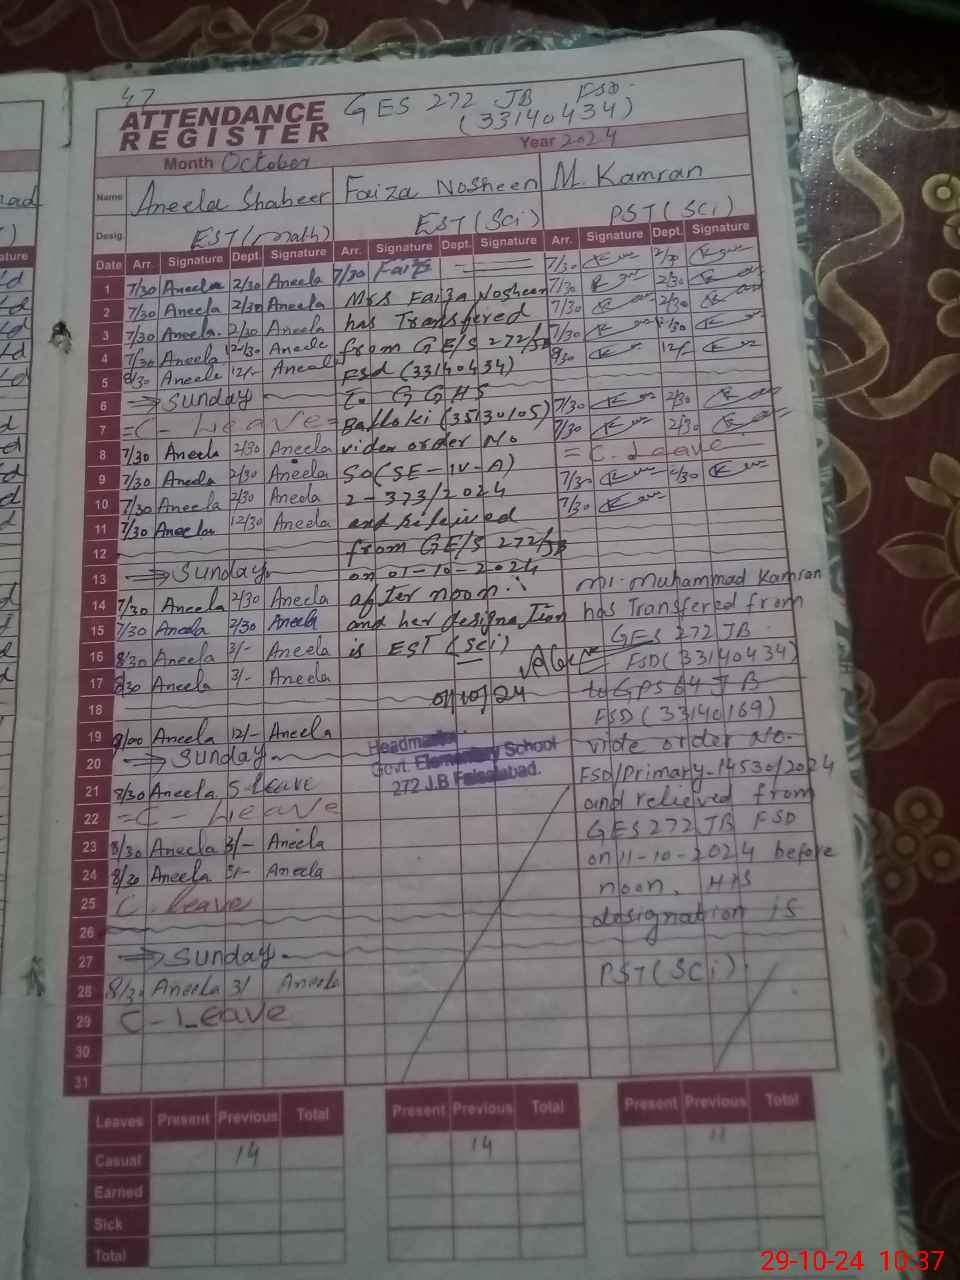 47
ATTENDANCE REGISTER
GES 272 JB FSD.
(33140434)
Month October Year 2024
Name Aneela Shaheer Faiza Nosheen M. Kamran
Desig. EST (math) EST (Sci) PST (SCi)
Date Arr. Signature Dept. Signature Arr. Signature Dept. Signature Arr. Signature Dept. Signature
1 7/30 Aneela 2/30 Aneela 7/30 Faiz
2 7/30 Aneela 2/30 Aneela
3 7/30 Aneela. 2/30 Aneela
4 7/30 Aneela 12/30 Aneela
5 8/30 Aneela 12/- Aneela
6 → Sunday
7 = C- Leave =
8 7/30 Aneela 2/30 Aneela
9 7/30 Aneela 2/30 Aneela
10 7/30 Aneela 2/30 Aneela
11 7/30 Aneela 12/30 Aneela
12
13 → Sunday
14 7/30 Aneela 2/30 Aneela
15 7/30 Aneela 2/30 Aneela
16 8/30 Aneela 3/- Aneela
17 8/30 Aneela 3/- Aneela
18
19 9/00 Aneela 12/- Aneela
20 → Sunday
21 8/30 Aneela S-Leave
22 = C - Leave
23 8/30 Aneela 3/- Aneela
24 8/30 Aneela 3/- Aneela
25 C. Leave
26
27 → Sunday.
28 8/30 Aneela 3/ Aneela
29 C - Leave
30
31
Mrs Faiza Nosheen
has Transfered
from GE/S 272/JB
Fsd (33140434)
To GGHS
Balloki (35130105)
vider order No
SO(SE-IV-A)
2-373/2024
and releived
from GE/S 272/JB
on 01-10-2024
after noon.
and her designation
is EST (Sci)
01/10/24
Headmaster
Govt. Elementary School
272 J.B Faisalabad.
7/30 2/30
7/30 2/30
7/30 2/30
7/30
8/30 12/-
7/30 2/30
7/30 2/30
= C. Leave
7/30 2/30
7/30
Mr. Muhammad Kamran
has Transfered from
GES 272 JB
FSD (33140434)
to GPS 64 JB
FSD (33140169)
vide order No.
FSD/Primary-14530/2024
and relieved from
GES 272 JB FSD
on 11-10-2024 before
noon. His
designation is
PST (SCi).
Leaves Present Previous Total Present Previous Total Present Previous Total
Casual 14 14 11
Earned
Sick
Total
29-10-24 10:37